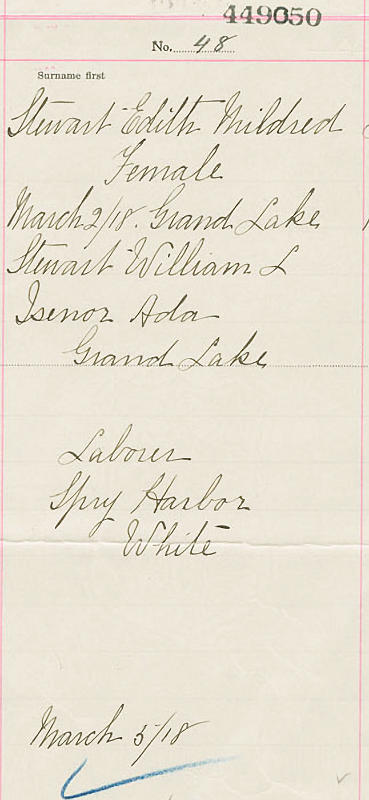 449050
No. 48
Surname first
Stewart Edith Mildred
Female
March 2/18. Grand Lake
Stewart William L
Isenor Ada
Grand Lake
Laborer
Spry Harbor
White
March 5/18